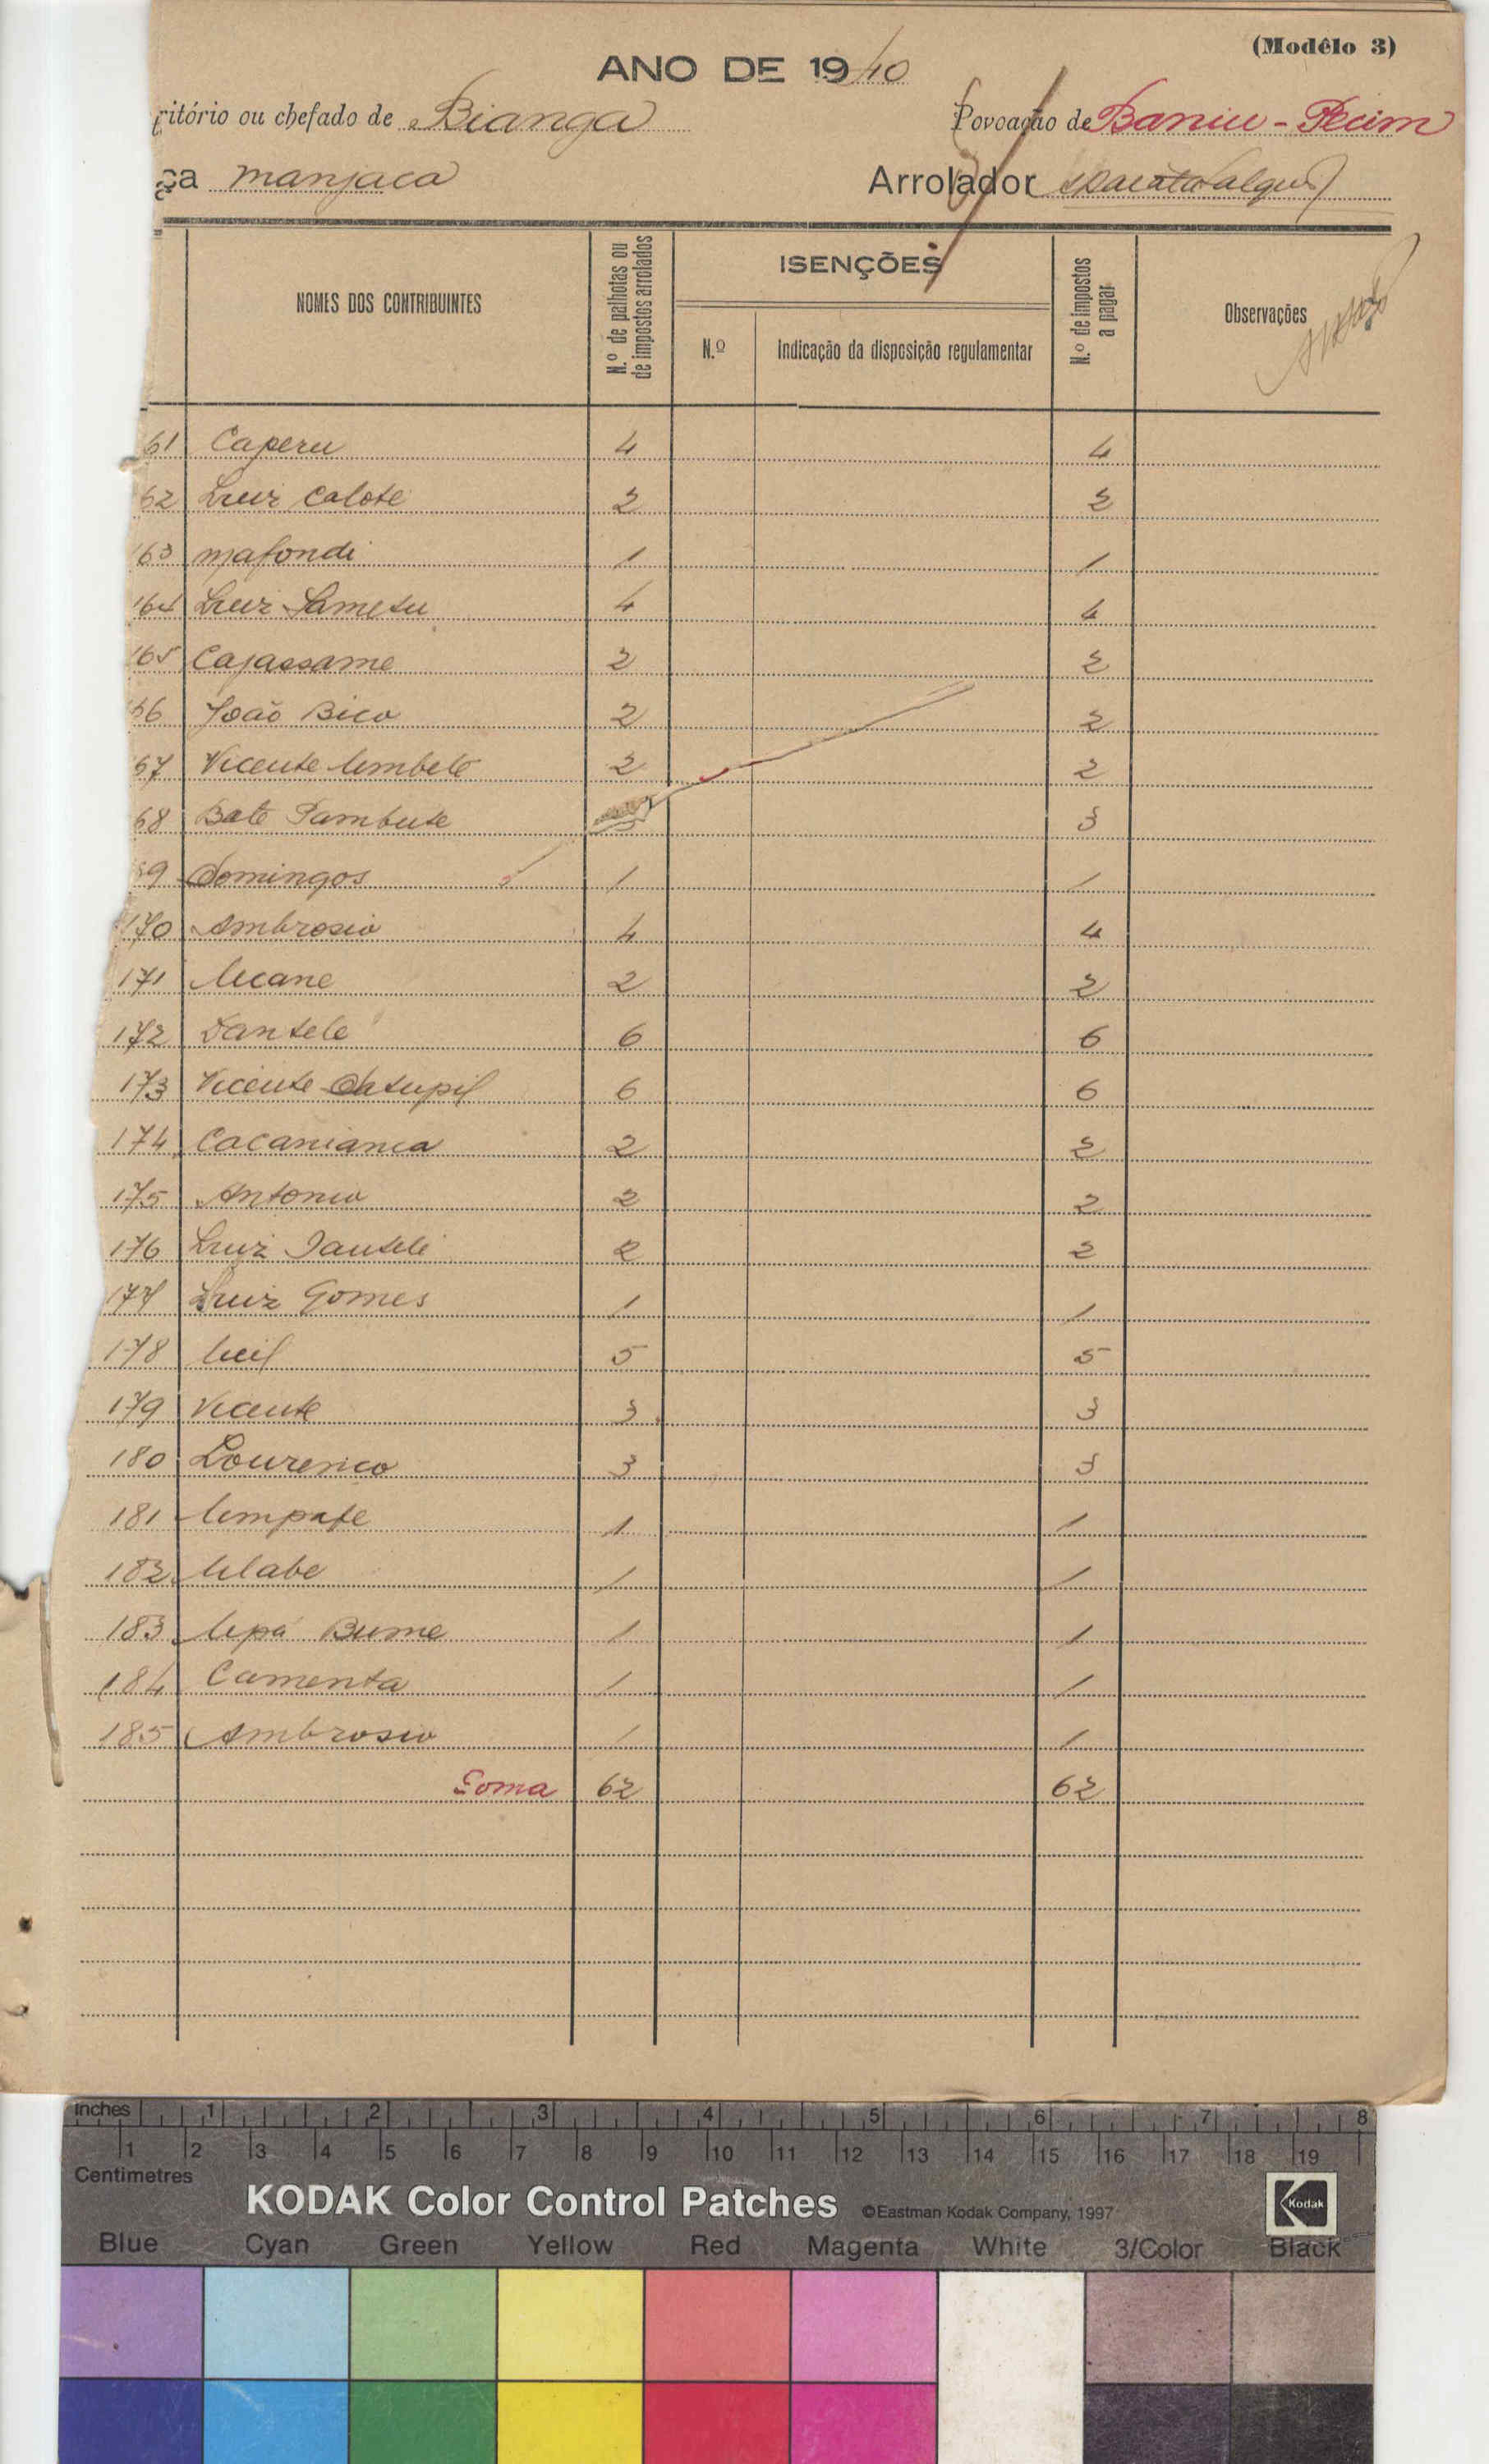 (Modêlo 3)
ANO DE 1940
ritório ou chefado de Bianga Povoação de Baniu - Pecim
ça manjaca Arrolador
NOMES DOS CONTRIBUINTES N.º de palhotas ou de impostos arrolados ISENÇÕES N.º Indicação da disposição regulamentar N.º de impostos a pagar Observações
61 Caperu 4 4
62 Luiz Calote 2 2
163 mafondi 1 1
164 Luiz Sametu 4 4
165 Cajassame 2 2
66 João Bico 2 2
67 Vicente Umbelo 2 2
68 Bate Pambute 3
9 domingos 1 1
170 Ambrosio 4 4
171 Ucane 2 2
172 Dantele 6 6
173 Vicente 6 6
174 Cacanianca 2 2
175 Antonio 2 2
176 Luiz 2 2
177 Luiz Gomes 1 1
178 Ucil 5 5
179 Vicente 3 3
180 Lourenco 3 3
181 Umpafe 1 1
182 Ulabe 1 1
183 Upá Bume 1 1
184 Camenta 1 1
185 Ambrosio 1 1
Soma 62 62
inches 1 2 3 4 5 6 7 8
1 2 3 4 5 6 7 8 9 10 11 12 13 14 15 16 17 18 19
Centimetres
KODAK Color Control Patches ©Eastman Kodak Company, 1997 Kodak
Blue Cyan Green Yellow Red Magenta White 3/Color Black